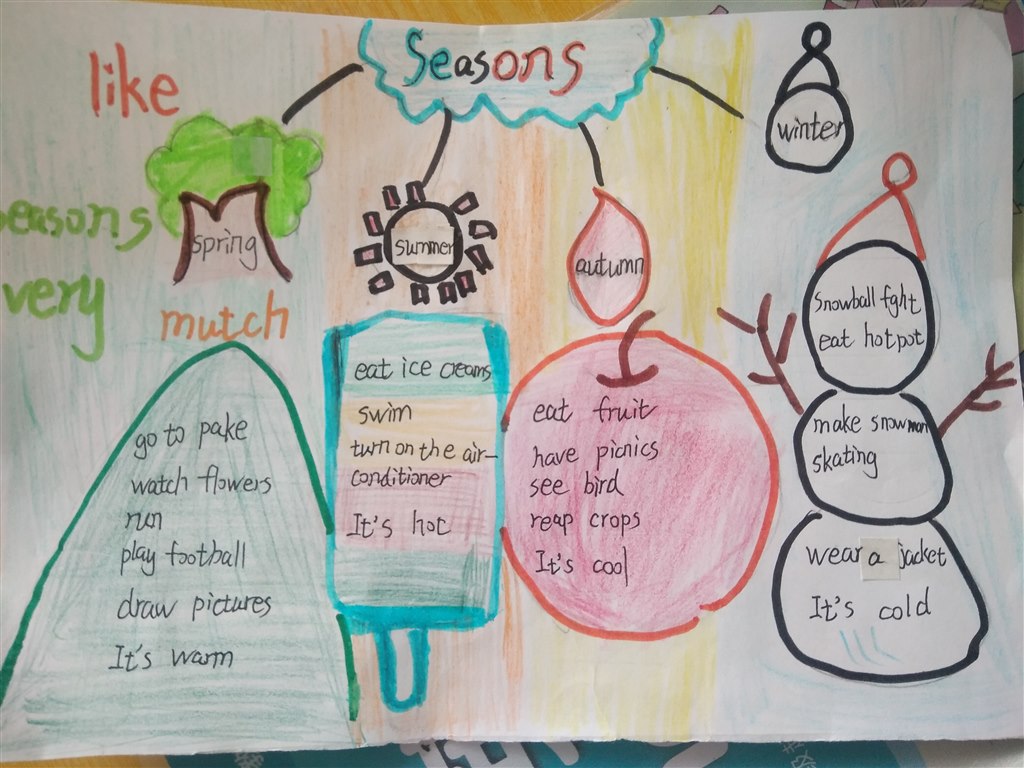 Seasons
like
seasons
very
mutch
spring
summer
autumn
winter
go to pake
watch flowers
run
play football
draw pictures
It's warm
eat ice creams
swim
turn on the air-
conditioner
It's hot
eat fruit
have picnics
see bird
reap crops
It's cool
Snowball fght
eat hotpot
make snowman
skating
wear a jacket
It's cold